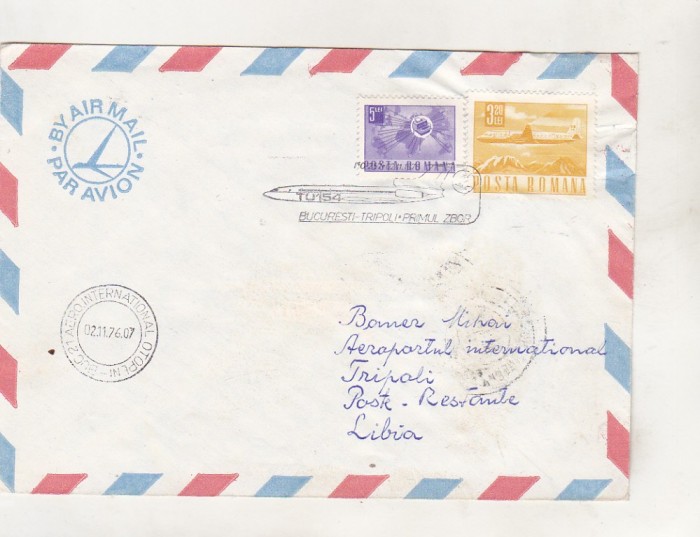 BY AIR MAIL
PAR AVION
5 LEI
POSTA ROMANA
3,20
LEI
POSTA ROMANA
TU 154
BUCURESTI-TRIPOLI•PRIMUL ZBOR
BUC. 21 AERO.INTERNATIONAL OTOPENI
02.11.76.07
Bomer Mihai
Aeroportul international
Tripoli
Post-Restante
Libia